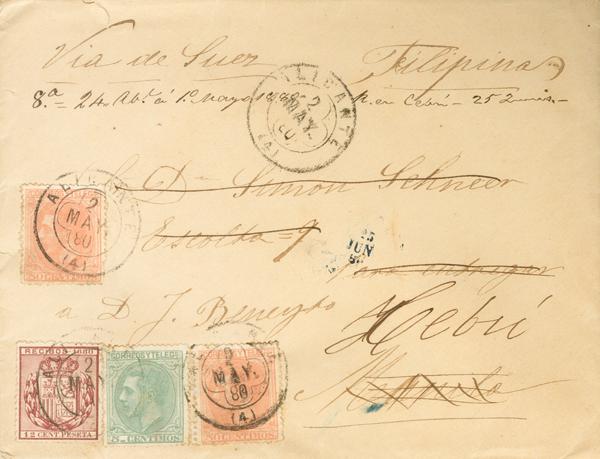 Via de Suez Filipinas
8.ª = 24 Ab.l á 1.º Mayo 1880 R. en Cebú = 25 Junio =
ALICANTE
2
MAY.
80
(4)
D.n Simon Schneer
ALICANTE
2
MAY
80
(4)
Escolta = 7
JUN
para entregar
a D. J. Beneyto
Hebú
Manila
RECIBOS 1880
12 CENT PESETA
2
MAY
CORREOS Y TELEGS
5 CENTIMOS
2
MAY.
80
(4)
50 CENTIMOS